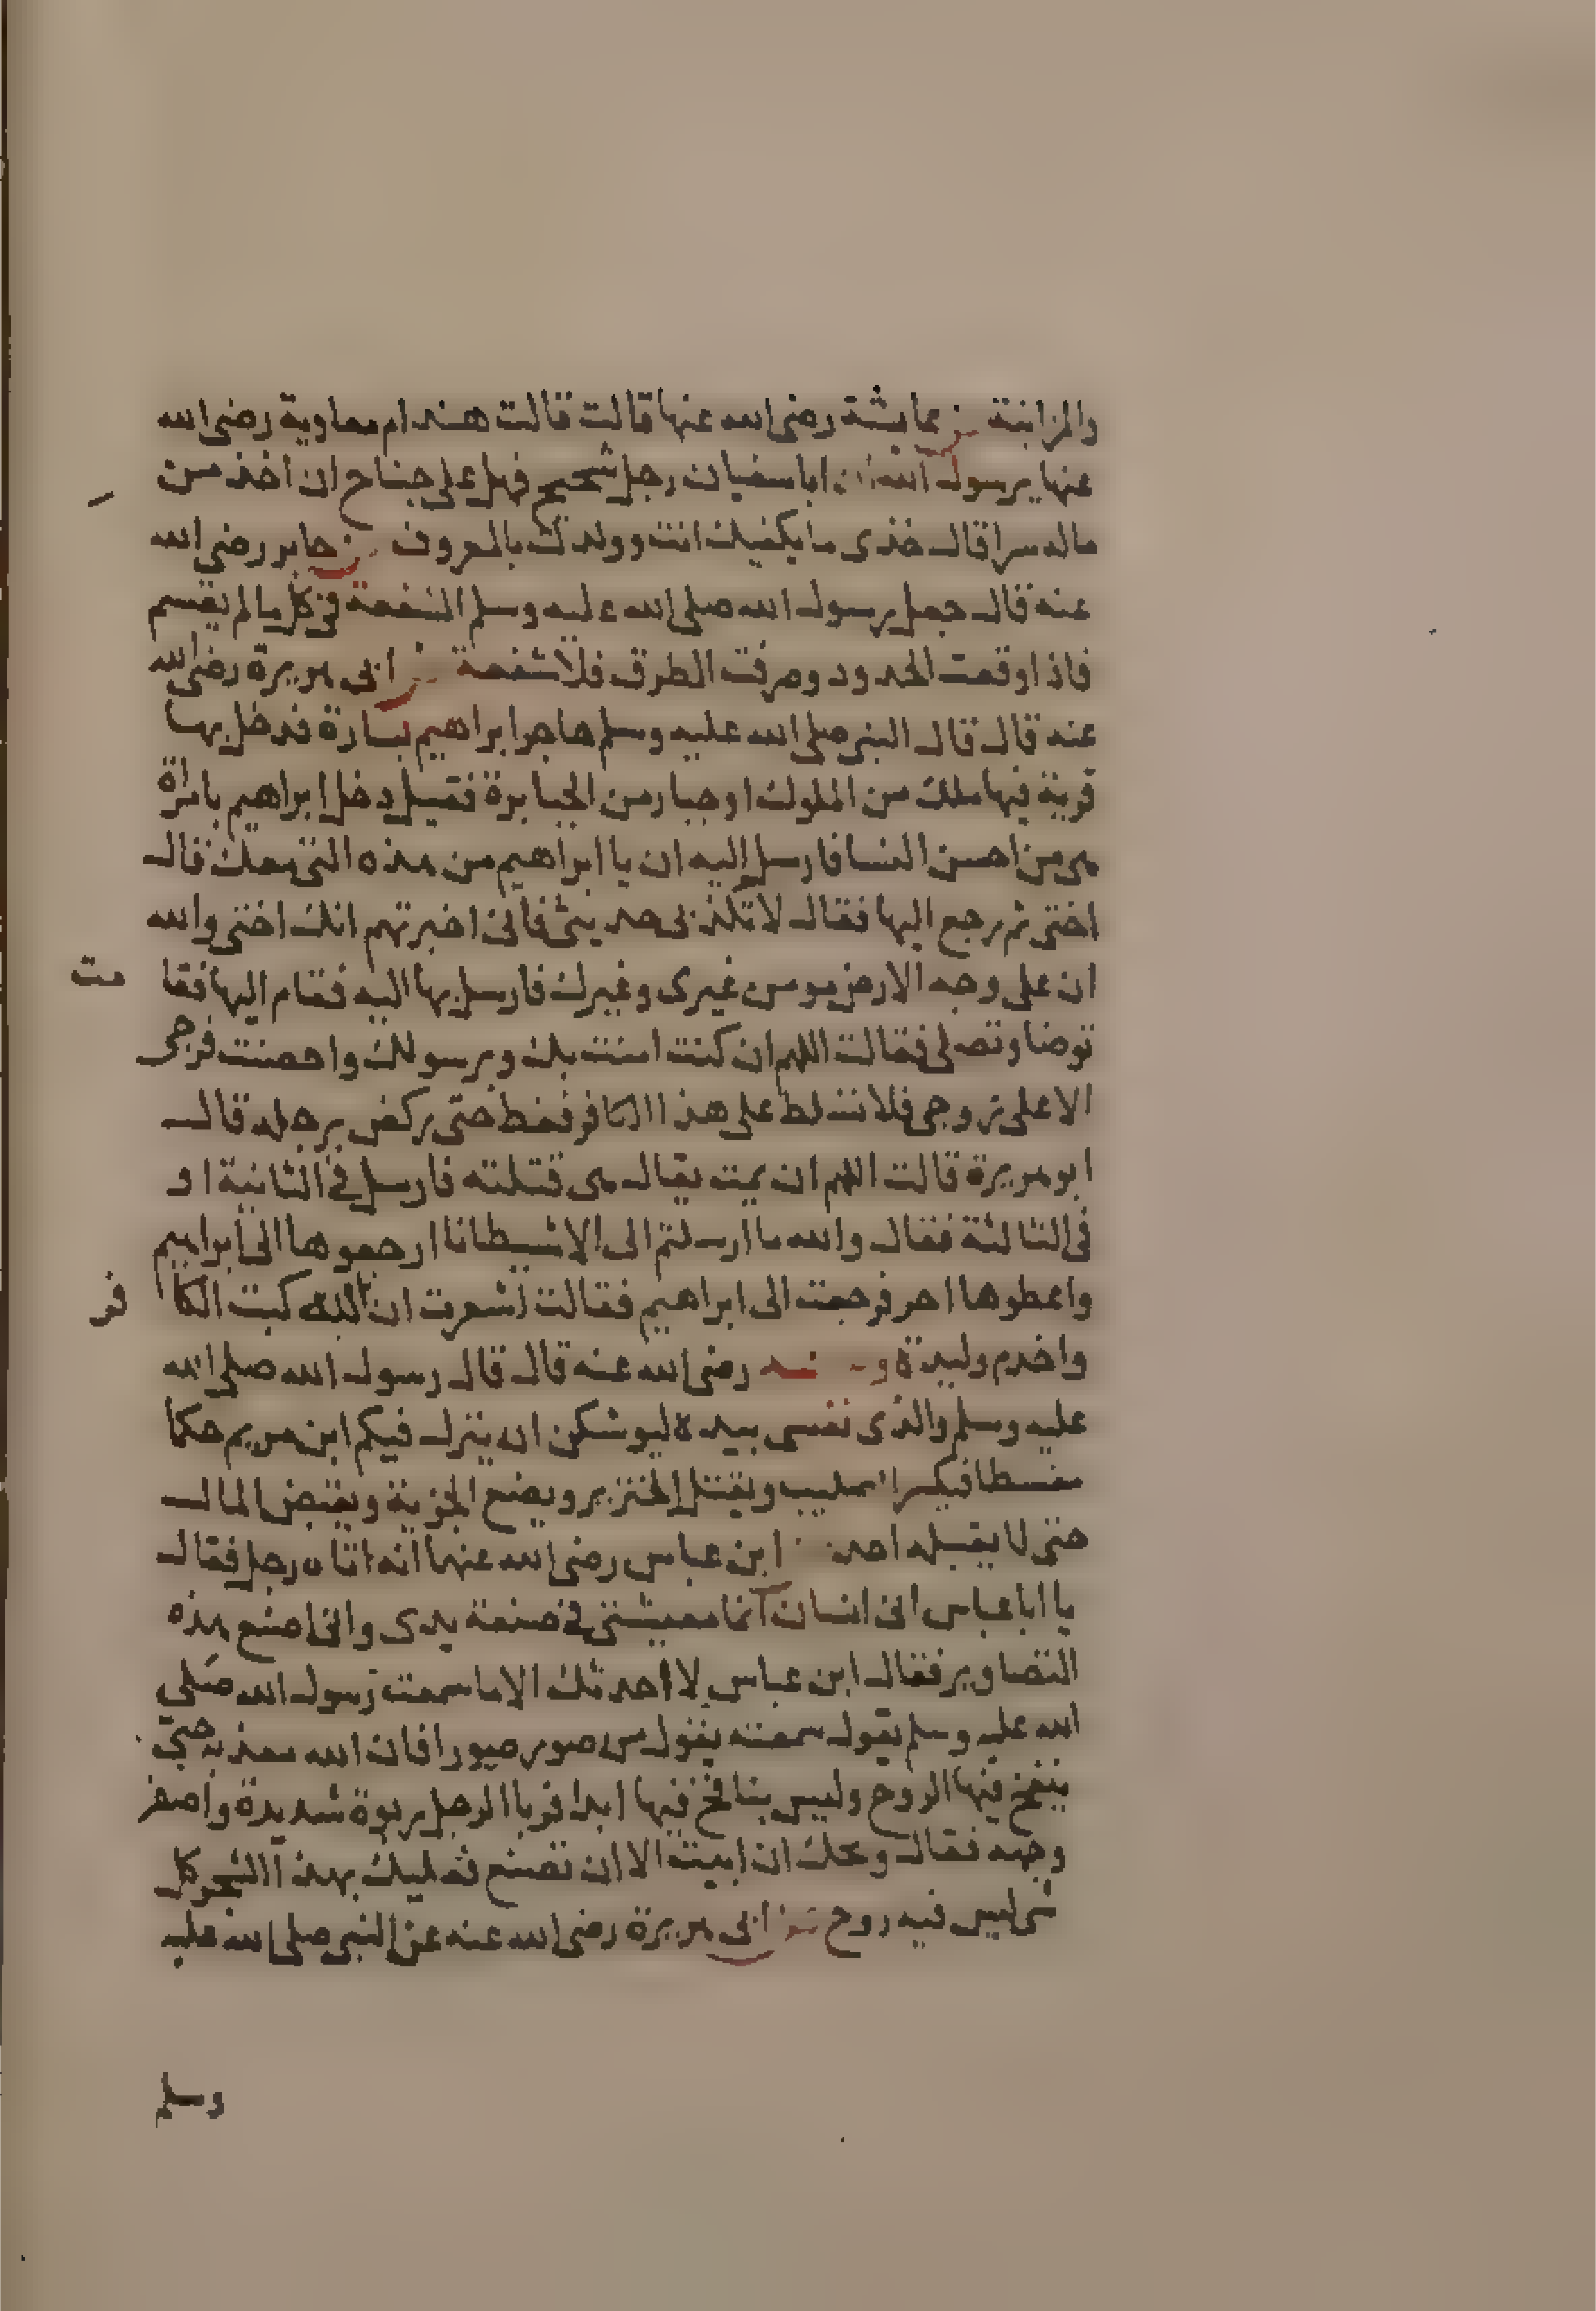 والمزابنة عن عايشة رضى الله عنها قالت قالت هند ام معاوية رضى الله
عنها يرسول الله ان اباسفيان رجل شحيح فهل على جناح ان اخذ من
ماله سرا قال خذى ما يكفيك انت وولدك بالمعروف عن جابر رضى الله
عنه قال جعل رسول الله صلى الله عليه وسلم الشفعة فى كل مالم يقسم
فاذا وقعت الحدود وصرفت الطرق فلا شفعة عن ابى هريرة رضى الله
عنه قال قال النبى صلى الله عليه وسلم هاجر ابراهيم بسارة فدخل بها
قرية فيها ملك من الملوك او جبار من الجبابرة فقيل دخل ابراهيم بامراة
هى من احسن النسا فارسل اليه ان يا ابراهيم من هذه التى معك قال
اختى ثم رجع اليها فقال لا تكذبى حديثى فانى اخبرتهم انك اختى والله
ان على وجه الارض مومن غيرى وغيرك فارسل بها اليه فقام اليها فقا مت
توضا وتصلى فقالت اللهم ان كنت امنت بك وبرسولك واحصنت فرجى
الا على زوجى فلا تسلط على هذا الكافر فغط حتى ركض برجله قال
ابو هريرة قالت اللهم ان يمت يقال هى قتلته فارسل فى الثانية او
فى الثالثة فقال والله ما ارسلتم الى الا شيطانا ارجعوها الى ابراهيم
واعطوها اجر فرجعت الى ابراهيم فقالت اشعرت ان الله كبت الكا فر
واخدم وليدة وعنه رضى الله عنه قال قال رسول الله صلى الله
عليه وسلم والذى نفسى بيده ليوشكن ان ينزل فيكم ابن مريم حكما
مقسطا فيكسر الصليب ويقتل الخنزير ويضع الجزية ويفيض المال
حتى لا يقبله احد عن ابن عباس رضى الله عنهما انه اتاه رجل فقال
يا ابا عباس انى انسان انما معيشتى فى صنعة يدى وانى اصنع هذه
التصاوير فقال ابن عباس لا احدثك الا ما سمعت رسول الله صلى
الله عليه وسلم يقول سمعته يقول من صور صورا فان الله معذبه حتى
ينفخ فيها الروح وليس بنافخ فيها ابدا فربا الرجل ربوة شديدة واصفر
وجهه فقال ويحك ان ابيت الا ان تصنع فعليك بهذا الشجر كل
شى ليس فيه روح عن ابى هريرة رضى الله عنه عن النبى صلى الله عليه
وسلم